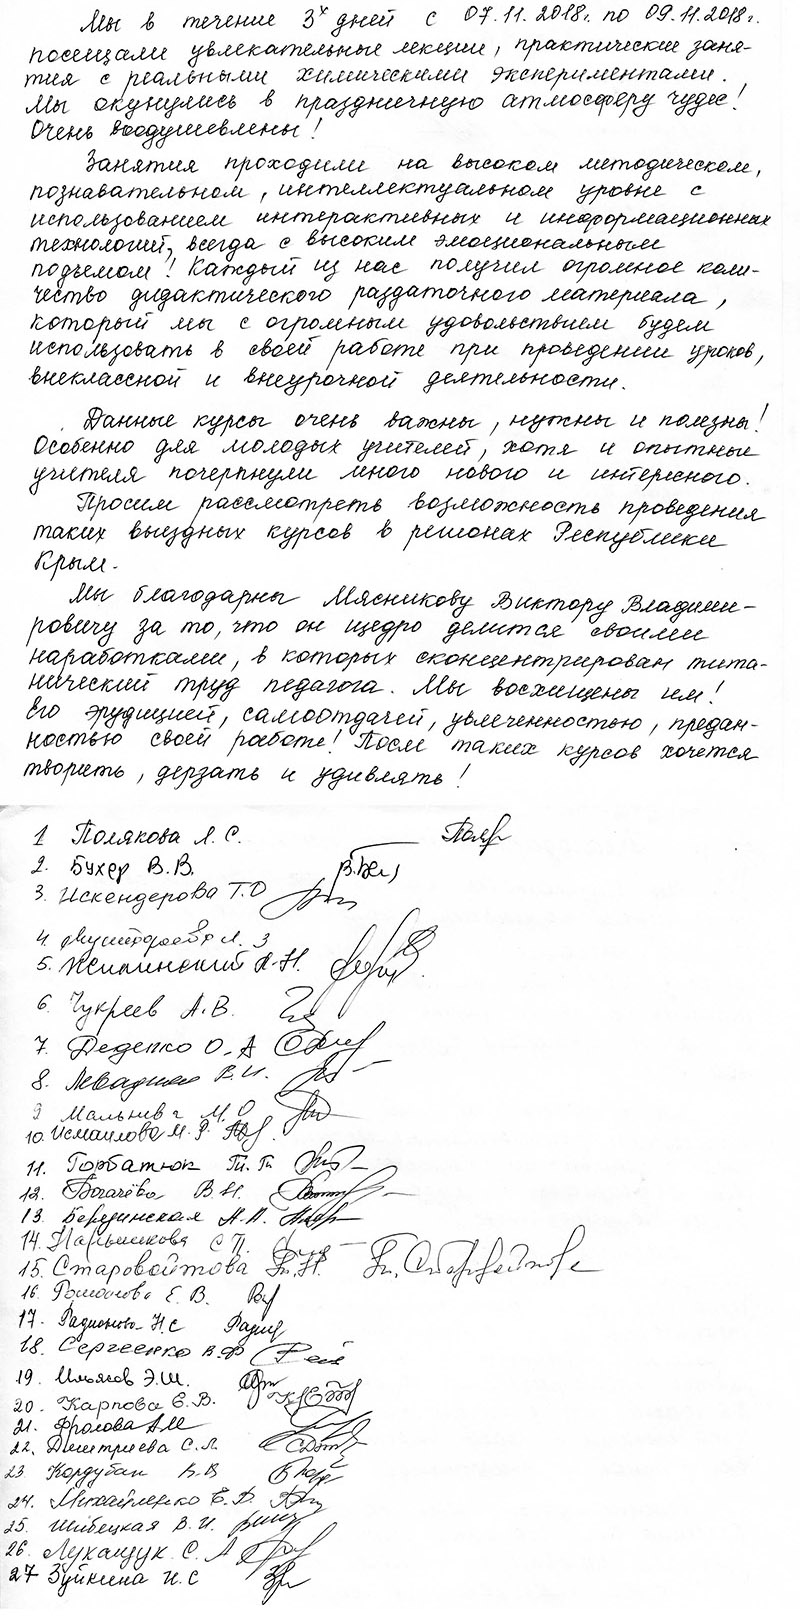 Мы в течение 3х дней с 07.11.2018г. по 09.11.2018г.
посещали увлекательные лекции, практические заня-
тия с реальными химическими экспериментами.
Мы окунулись в праздничную атмосферу чудес!
Очень воодушевлены!
Занятия проходили на высоком методическом,
познавательном, интеллектуальном уровне с
использованием интерактивных и информационных
технологий, всегда с высоким эмоциональным
подъемом! Каждый из нас получил огромное коли-
чество дидактического раздаточного материала,
который мы с огромным удовольствием будем
использовать в своей работе при проведении уроков,
внеклассной и внеурочной деятельности.
Данные курсы очень важны, нужны и полезны!
Особенно для молодых учителей, хотя и опытные
учителя почерпнули много нового и интересного.
Просим рассмотреть возможность проведения
таких выездных курсов в регионах Республики
Крым.
Мы благодарны Мясникову Виктору Владими-
ровичу за то, что он щедро делится своими
наработками, в которых сконцентрирован тита-
нический труд педагога. Мы восхищены им!
Его эрудицией, самоотдачей, увлеченностью, предан-
ностью своей работе! После таких курсов хочется
творить, дерзать и удивлять!
1 Полякова Л. С.
2. Бухер В. В.
3. Искендерова Т. О
4. Л. З
5. Жилинский А. Н.
6. Чукреев А. В.
7. Деденко О. А
8. В. И.
9 М. О
10. Исмаилова М. Р.
11. Горбатюк Т. Г.
12. Богачёва В. Н.
13. Берединская Н. А.
14. С. П.
15. Старовойтова Т. Н.
16. Романова Е. В.
17. Радионова Н. С
18. Сергеенко В. Ф
19. Ильясов Э. Ш.
20. Карпова Е. В.
21. Фролова А М
22. Дмитриева С. Л.
23 Кордубан В. В
24. Михайленко Е. В.
25. Шибецкая В. И.
26. Лукащук С. А
27 Зуйкина И. С